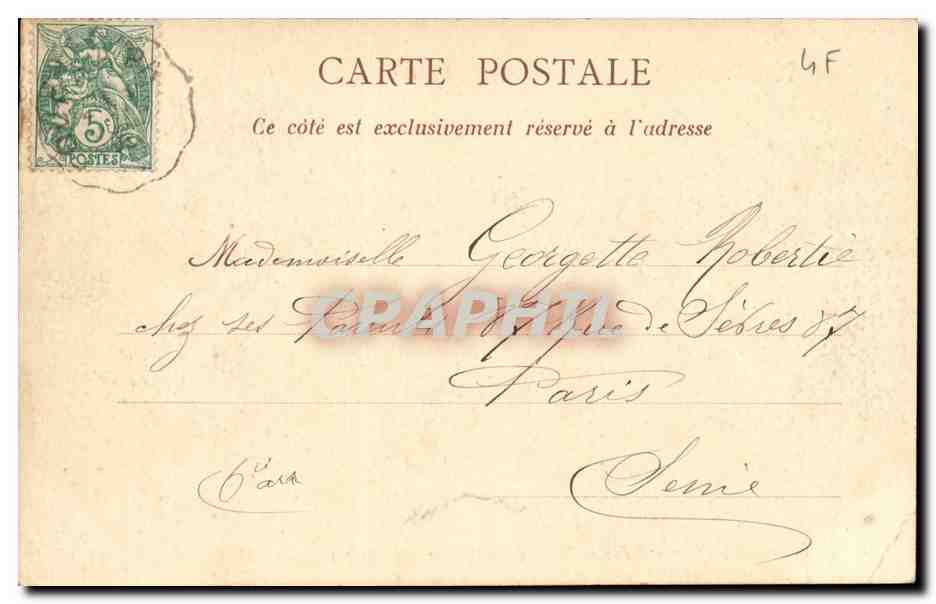 4F
CARTE POSTALE
Ce côté est exclusivement réservé à l'adresse
5c
POSTES
Mademoiselle Georgette Robertie
chez ses Parents 87 Rue de Sèvres 87
CPAPHIL
Paris
6e arr
Seine